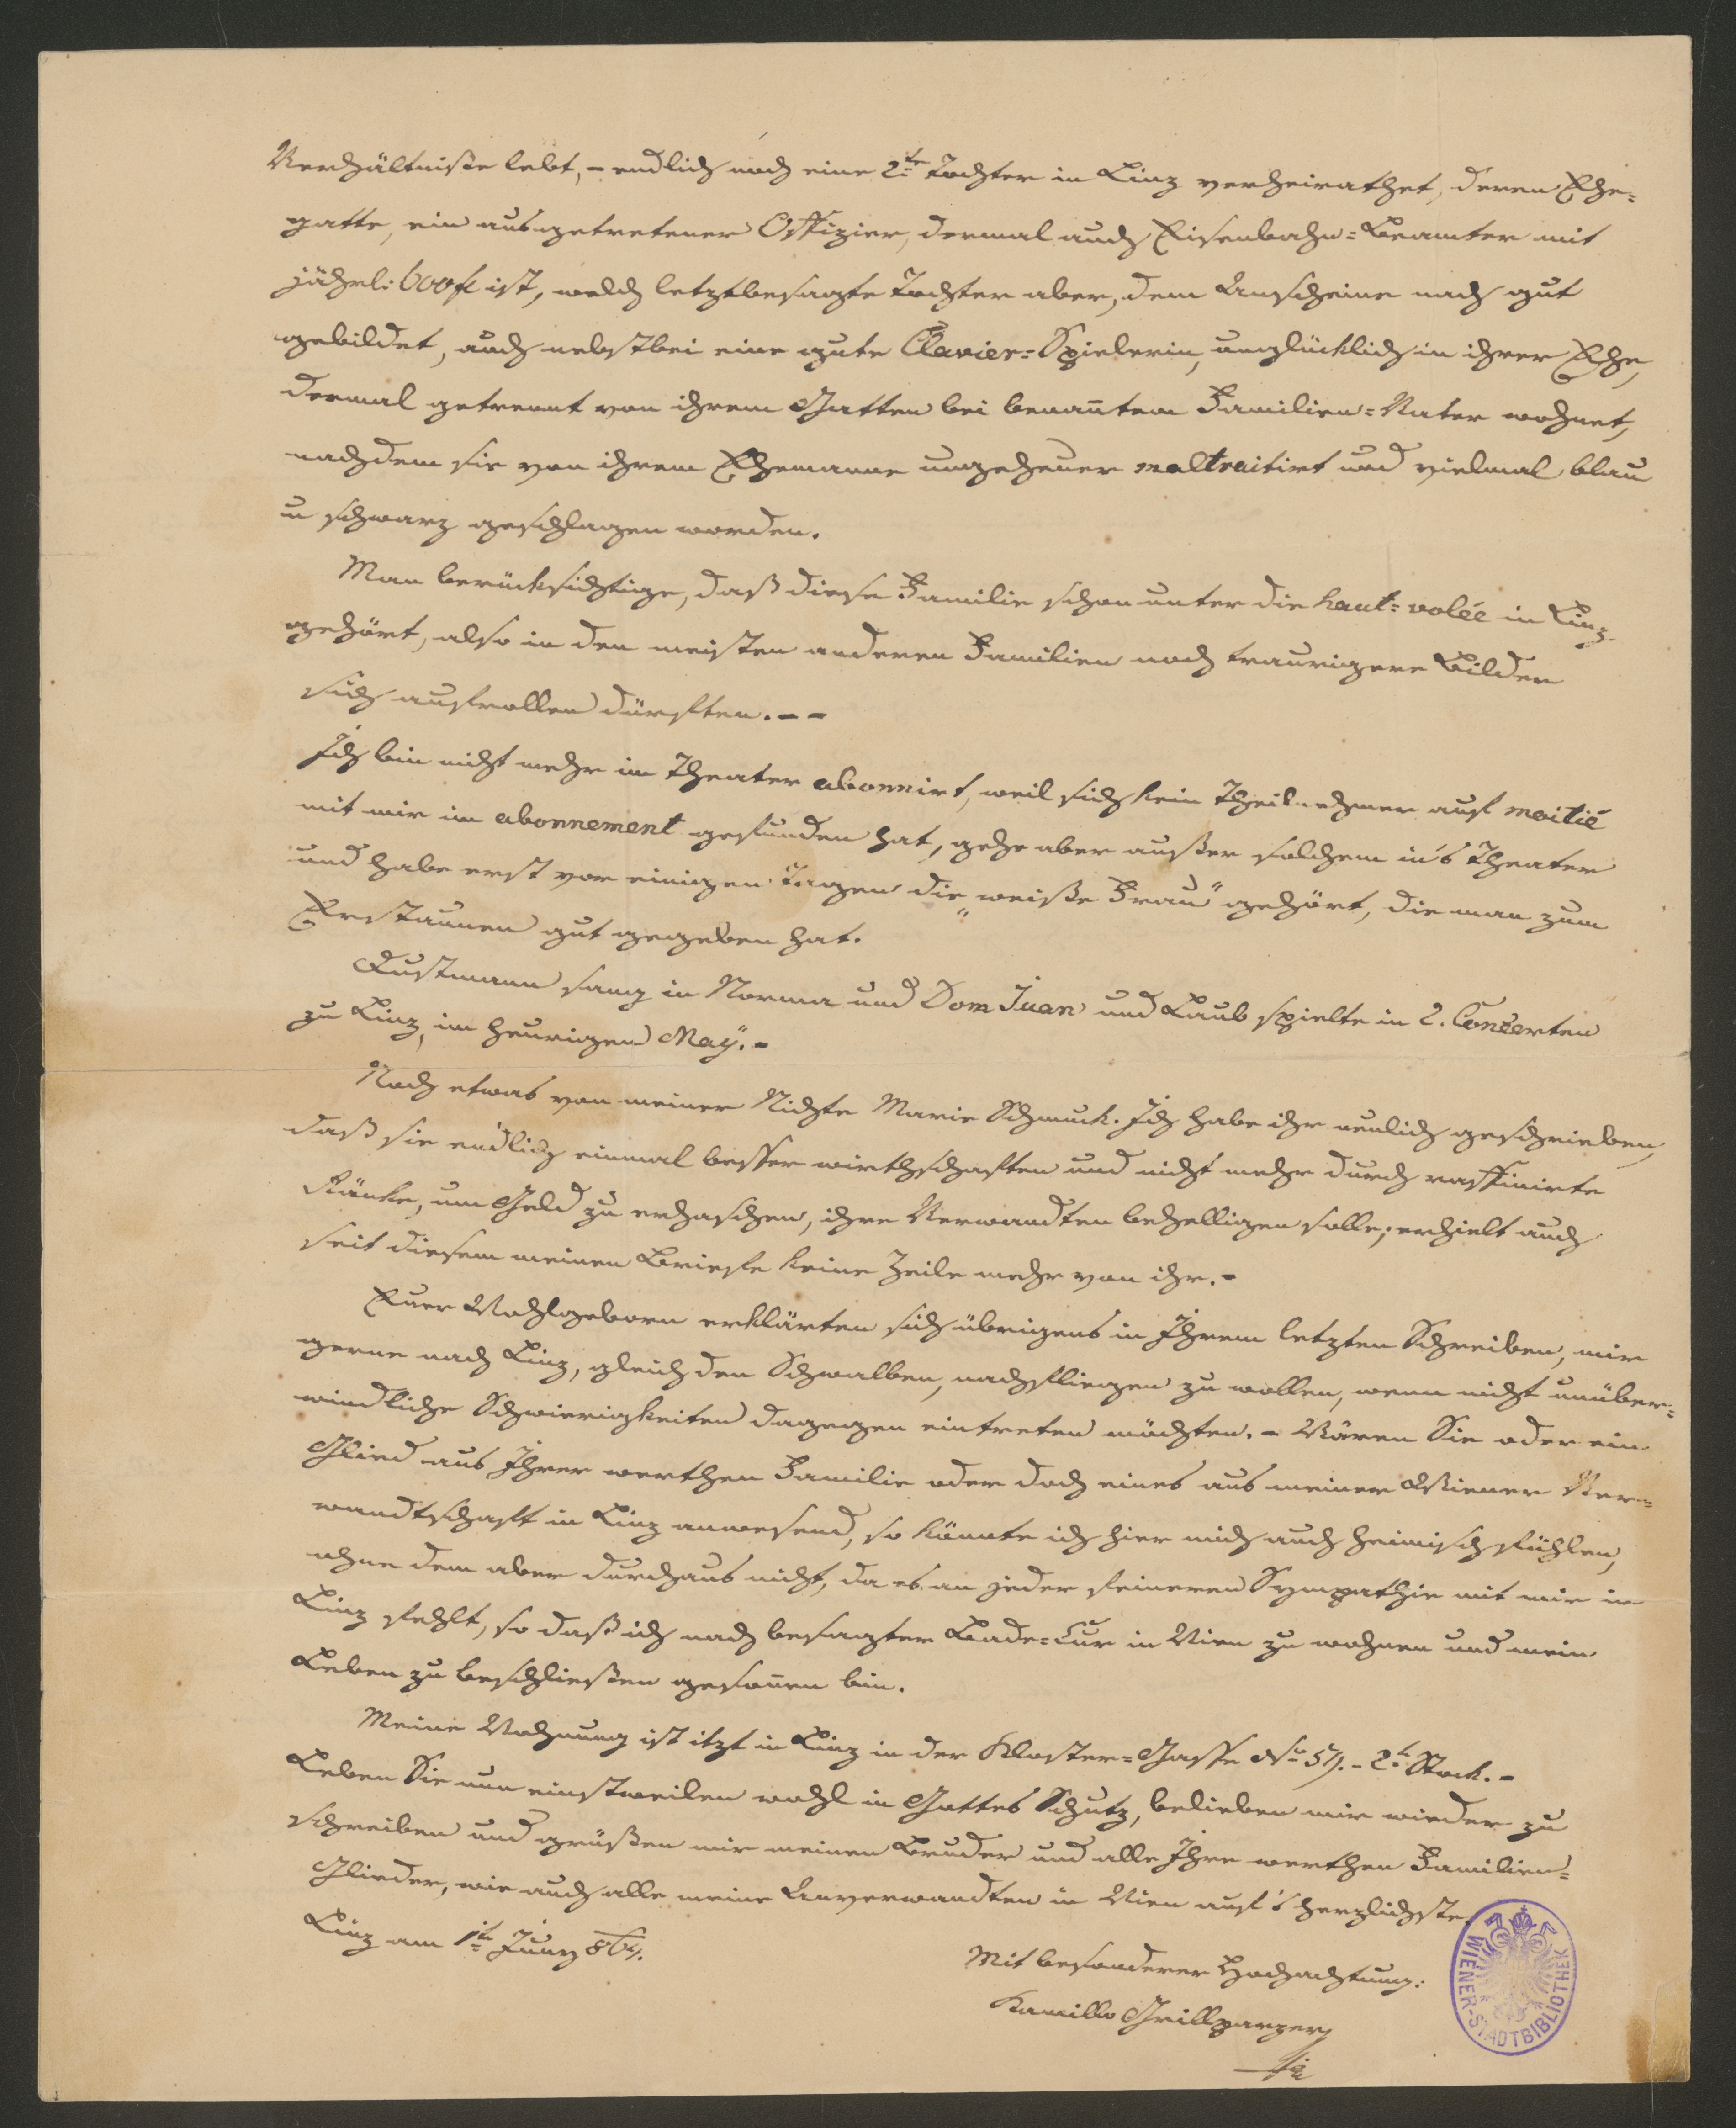 Verhältniße lebt, – endlich noch eine 2te Tochter in Linz verheirathet, deren Ehe=
gatte, ein ausgetretener Offizier, dermal auch Eisenbahn=Beamter mit
jährl: 600 fl ist, welch letztbesagte Tochter aber, dem Anscheine nach gut
gebildet, auch nebstbei eine gute Clavier=Spielerin, unglücklich in ihrer Ehe,
dermal getrennt von ihrem Gatten bei benañtem Familien=Vater wohnet,
nachdem sie von ihrem Ehemanne ungeheuer maltraitirt und vielmal blau
u schwarz geschlagen worden.
Man berücksichtige, daß diese Familie schon unter die haut=volée in Linz
gehört, also in den meisten anderen Familien noch traurigere Bilder
sich aufrollen dürften. – –
Ich bin nicht mehr im Theater abonnirt, weil sich kein Theilnehmer auf moitié
mit mir im abonnement gefunden hat, gehe aber außer solchem in's Theater
und habe erst vor einigen Tagen die „weiße Frau" gehört, die man zum
Erstaunen gut gegeben hat.
Dustmann sang in Norma und Dom Juan und Laub spielte in 2. Conzerten
zu Linz, im heurigen May. –
Noch etwas von meiner Nichte Marie Schmuck. Ich habe ihr neulich geschrieben,
daß sie endlich einmal besser wirthschaften und nicht mehr durch raffinirte
Ränke, um Geld zu erhaschen, ihre Verwandten behelligen solle; erhielt auch
seit diesem meinen Briefe keine Zeile mehr von ihr. –
Euer Wohlgeborn erklärten sich übrigens in Ihrem letzten Schreiben, mir
gerne nach Linz, gleich den Schwalben, nachfliegen zu wollen, wenn nicht unüber=
windliche Schwierigkeiten dagegen eintreten möchten. – Wären Sie oder ein
Glied aus Ihrer werthen Familie oder doch eines aus meiner Wiener Ver=
wandtschaft in Linz anwesend, so könnte ich hier mich auch heimisch fühlen,
ohne dem aber durchaus nicht, da es an jeder feineren Sympathie mit mir in
Linz fehlt, so daß ich nach besagter Bade=Cur in Wien zu wohnen und mein
Leben zu beschließen gesoñen bin.
Meine Wohnung ist itzt in Linz in der Kloster=Gasse No 57. – 2t Stock. –
Leben Sie nun einstweilen wohl in Gottes Schutz, belieben mir wieder zu
schreiben und grüßen mir meinen Bruder und alle Ihre werthen Familien=
Glieder, wie auch alle meine Anverwandten in Wien auf's herzlichste.
Linz am 1t Juny
Mit besonderer Hochachtung:
Kamillo Grillparzer
WIENER-STADTBIBLIOTHEK